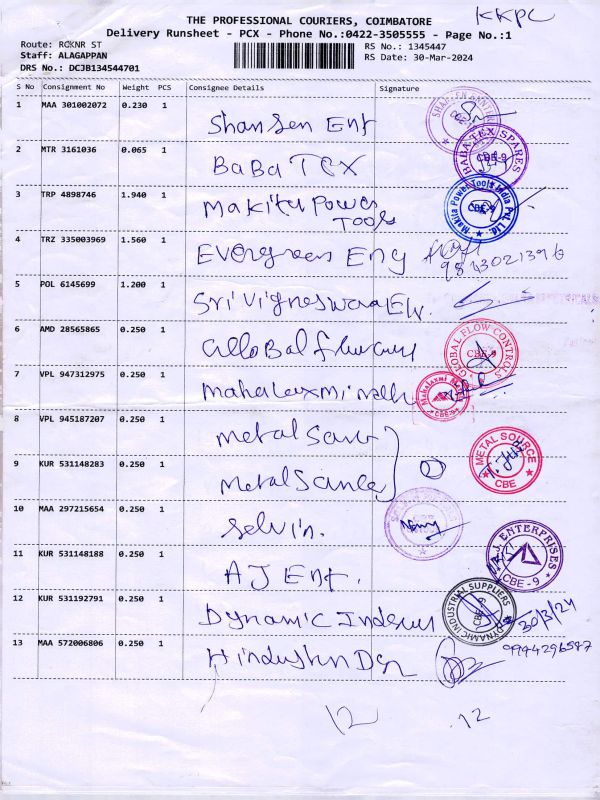 KKPC
THE PROFESSIONAL COURIERS, COIMBATORE
Delivery Runsheet - PCX - Phone No.:0422-3505555 - Page No.:1
Route: ROKNR ST
Staff: ALAGAPPAN
DRS No.: DCJB134544701
RS No.: 1345447
RS Date: 30-Mar-2024
S No Consignment No Weight PCS Consignee Details Signature
1 MAA 301002072 0.230 1 Shansen Ent
2 MTR 3161036 0.065 1 BaBa TEX
BABA TEX SPARES CBE-9
3 TRP 4898746 1.940 1 Makita Power
Tools
Makita Power Tools India Pvt. Ltd. CBE-9
4 TRZ 335003969 1.560 1 Evergreen Eng
9843021396
5 POL 6145699 1.200 1 Sri Vigneswara
6 AMD 28565865 0.250 1
GLOBAL FLOW CONTROLS CBE-9
7 VPL 947312975 0.250 1 Mahalaxmi
Mahalaxmi CBE-9
8 VPL 945187207 0.250 1 Metal
METAL SOURCE CBE
9 KUR 531148283 0.250 1 Metal
10 MAA 297215654 0.250 1 Selvin.
11 KUR 531148188 0.250 1 AJ Ent.
A.J. ENTERPRISES CBE-9
12 KUR 531192791 0.250 1 Dynamic
DYNAMIC INDUSTRIAL SUPPLIERS CBE-9
30/3/24
13 MAA 572006806 0.250 1 Hindustan
9994296587
12 .12